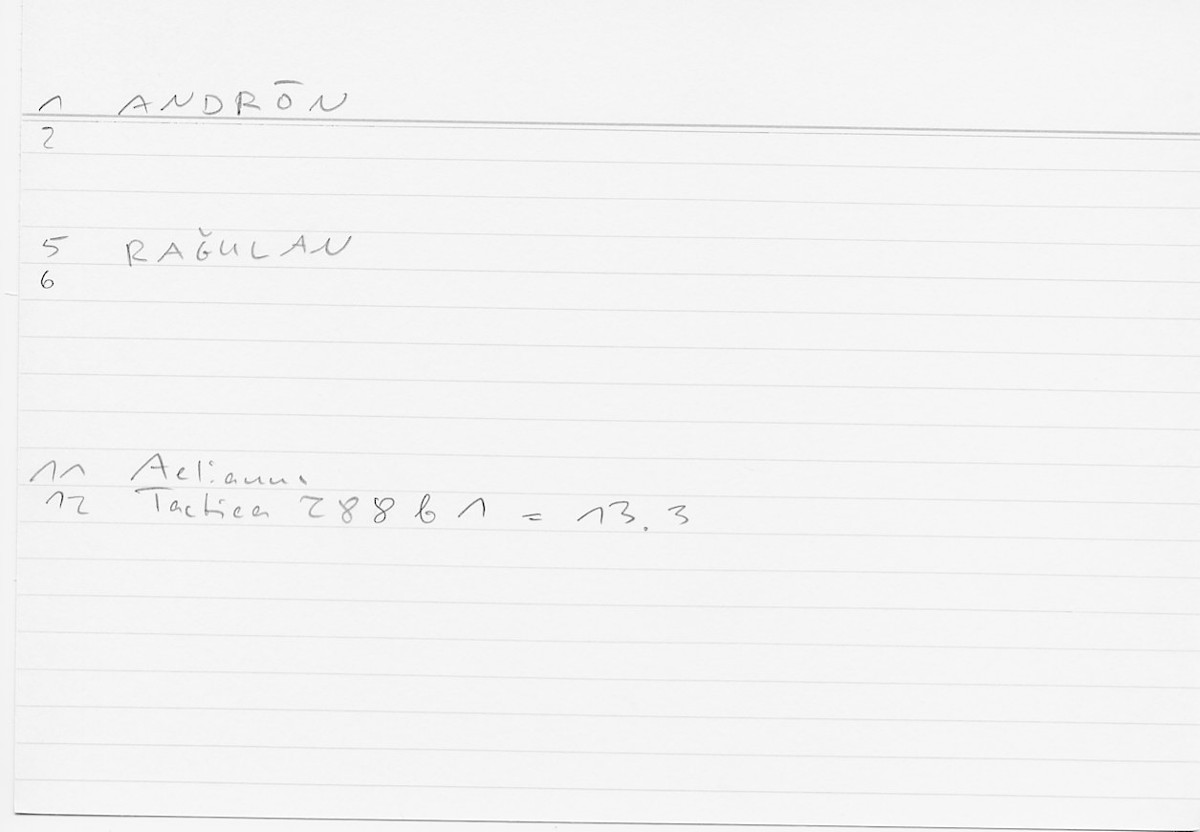 1 ANDRŌN
2
5 RAĞULAN
6
11 Aelianus
12 Tactica 288 b 1 = 13.3